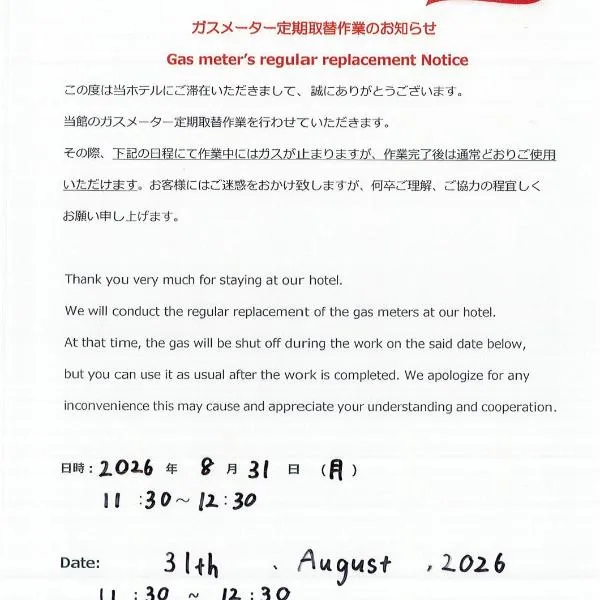 ガスメーター定期取替作業のお知らせ
Gas meter's regular replacement Notice
この度は当ホテルにご滞在いただきまして、誠にありがとうございます。
当館のガスメーター定期取替作業を行わせていただきます。
その際、下記の日程にて作業中にはガスが止まりますが、作業完了後は通常どおりご使用
いただけます。お客様にはご迷惑をおかけ致しますが、何卒ご理解、ご協力の程宜しく
お願い申し上げます。
Thank you very much for staying at our hotel.
We will conduct the regular replacement of the gas meters at our hotel.
At that time, the gas will be shut off during the work on the said date below,
but you can use it as usual after the work is completed. We apologize for any
inconvenience this may cause and appreciate your understanding and cooperation.
日時：2026 年 8 月 31 日 （月）
11:30～12:30
Date: 31th、August, 2026
11:30 ~ 12:30